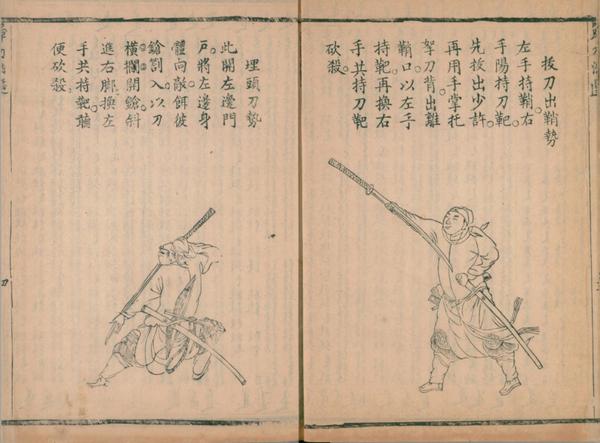 拔刀出鞘勢
左手持鞘右
手陽持刀靶
先拔出少許
再用手掌托
拏刀背出離
鞘口以左手
持靶再換右
手共持刀靶
砍殺
埋頭刀勢
此開左邊門
戶將左邊身
體向敵餌彼
鎗劄入以刀
橫攔開鎗斜
進右腳換左
手共持靶聽
便砍殺